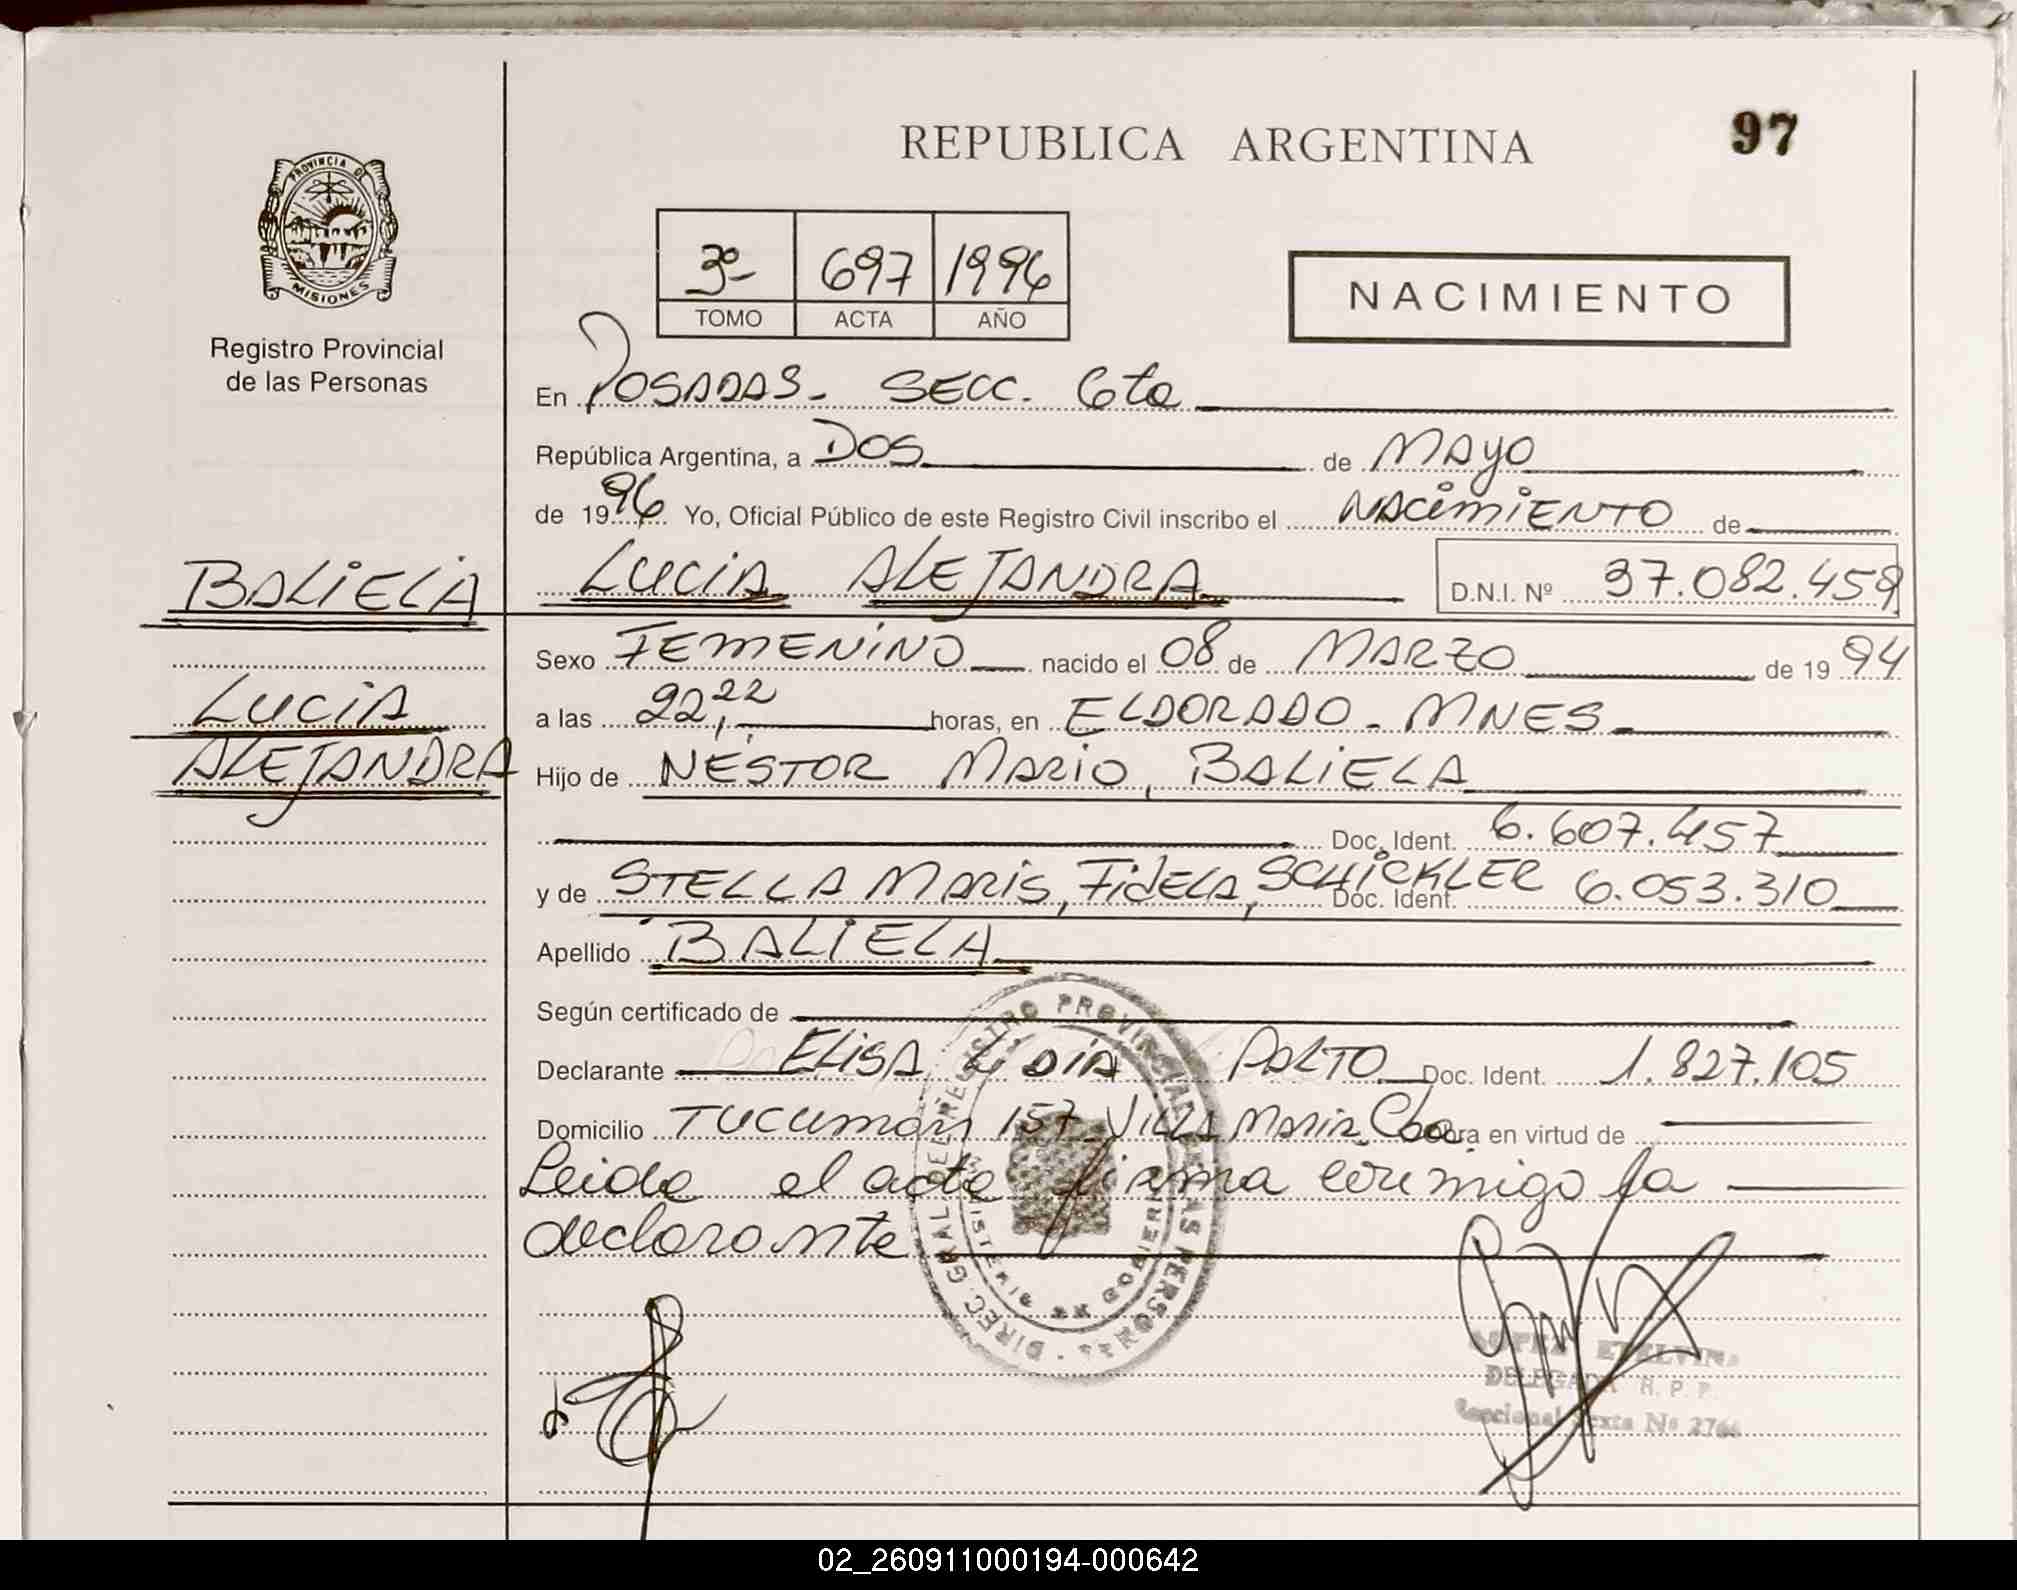 PROVINCIA DE
MISIONES
Registro Provincial
de las Personas
REPUBLICA ARGENTINA
97
3º 697 1996
TOMO ACTA AÑO
NACIMIENTO
En POSADAS - SECC. 6ta
República Argentina, a DOS de MAYO
de 1996 Yo, Oficial Público de este Registro Civil inscribo el NACIMIENTO de
BALIELA
LUCIA ALEJANDRA D.N.I. Nº 37.082.459
Sexo FEMENINO nacido el 08 de MARZO de 1994
LUCIA
a las 22,22 horas, en ELDORADO - MNES -
ALEJANDRA
Hijo de NESTOR MARIO, BALIELA
Doc. Ident. 6.607.457
y de STELLA MARIS, FIDELA, SCHICKLER Doc. Ident. 6.053.310
Apellido BALIELA
Según certificado de
Declarante ELISA LIDIA Doc. Ident. 1.827.105
Domicilio TUCUMAN 157 VILLA MARIA Cba Obra en virtud de
Leida el acta firma conmigo la
declarante
DIREC. GRAL. DEL REGISTRO PROVINCIAL DE LAS PERSONAS
LOPEZ ETELVINA
DELEGADA R. P. P.
Seccional Sexta Nº 2766
02_260911000194-000642